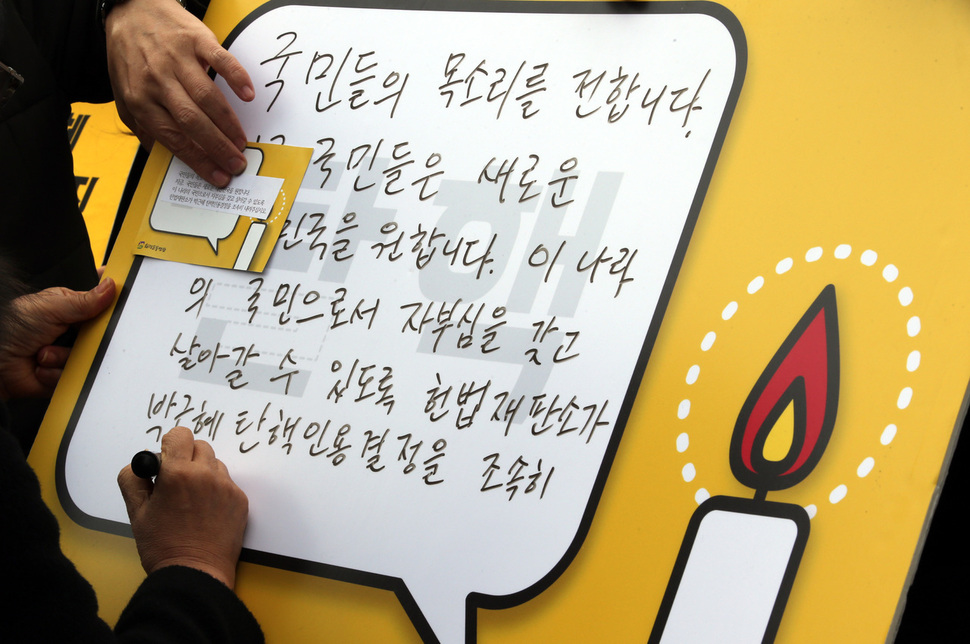 국민들의 목소리를 전합니다.
국민들은 새로운
민국을 원합니다. 이 나라
의 국민으로서 자부심을 갖고
살아갈 수 있도록 헌법재판소가
박근혜 탄핵인용결정을 조속히
탄핵